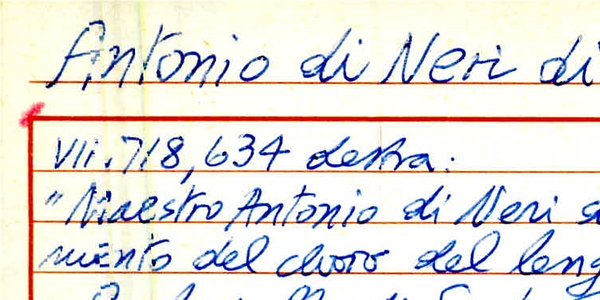 Antonio di Neri di
VII.718,634 destra:
"Maestro Antonio di Neri
mento del choro del